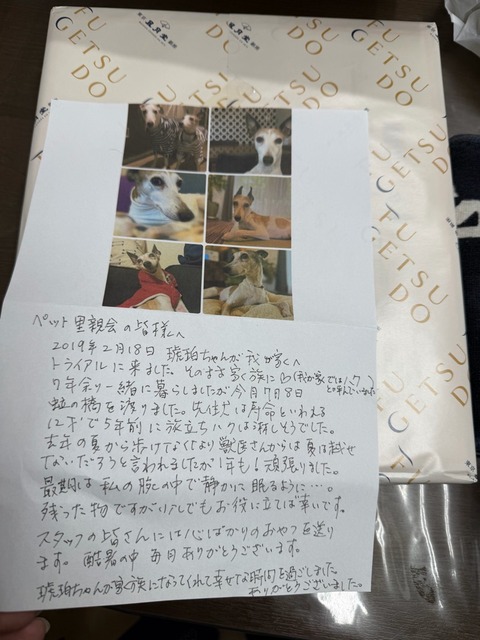 FU
GETSU
DO
東京 風月堂 銀座
FU
GETSU
DO
FU
GETSU
DO
FU
GETSU
DO
ペット里親会の皆様へ
2019年2月18日 琥珀ちゃんが我が家へ
トライアルに来ました そのまま家族に(我が家ではハク
と呼んでいました)
7年余り一緒に暮らしましたが今月7月8日
虹の橋を渡りました。先住犬は寿命といわれる
12才で5年前に旅立ちハクは淋しそうでした。
去年の夏から歩けなくなり獣医さんからは夏は越せ
ないだろうと言われましたが1年も!頑張りました。
最期は私の腕の中で静かに眠るように…。
残った物ですが少しでもお役に立てば幸いです。
スタッフの皆さんには心ばかりのおやつを送り
ます。酷暑の中 毎日ありがとうございます。
琥珀ちゃんが家族になってくれて幸せな時間を過ごしました。
ありがとうございました。